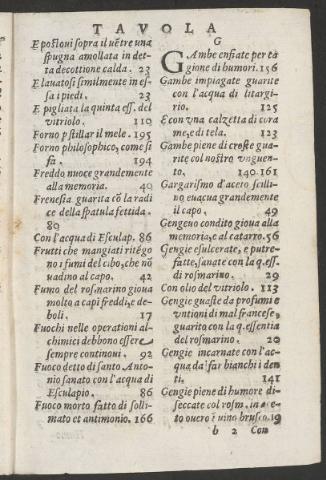 TAVOLA
E postovi sopra il uētre una
spugna amollata in det-
ta decottione calda. 23
E lauatosi similmente in es-
sa i piedi. 23
E pigliata la quinta ess. del
vitriolo. 110
Forno p stillar il mele. 195
Forno philosophico, come si
fa. 194
Freddo nuoce grandemente
alla memoria. 40
Frenesia guarita cō la radi
ce della spatula fettida.
80
Con l'acqua di Esculap. 86
Frutti che mangiati ritēgo
no i fumi del cibo, che nō
uadino al capo. 42
Fumo del rosmarino gioua
molto a capi freddi, e de-
boli. 17
Fuochi nelle operationi al-
chimici debbono essere
sempre continoui. 92
Fuoco detto di santo Anto-
nio sanato con l'acqua di
Esculapio. 86
Fuoco morto fatto di solli-
mato et antimonio. 166
G
GAmbe enfiate per ca
gione di humori. 156
Gambe impiagate guarite
con l'acqua di litargi-
rio. 125
E con vna calzetta di cora
me, e di tela. 123
Gambe piene di croste gua-
rite col nostro vnguen-
to. 140. 161
Gargarismo d'aceto scilli-
no euacua grandemente
il capo. 49
Gengeuo condito gioua alla
memoria, e al catarro. 56
Gengie esulcerate, e putre-
fatte, sanate con la q. ess.
di rosmarino. 29
Con olio del vitriolo. 113
Gengie guaste da profumi e
vntioni di mal francese,
guarito con la q. essentia
del rosmarino. 20
Gengie incarnate con l'ac-
qua da far bianchi i den
ti. 141
Gengie piene di humore di-
seccate col rosm. in ace-
to ouero ī uino brusco. 19
b 2 Con